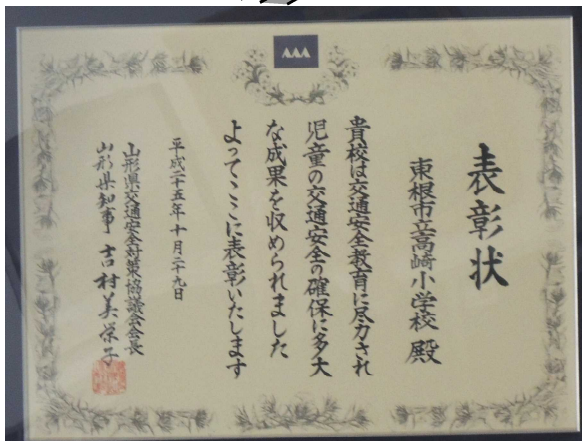 表彰状
東根市立高崎小学校 殿
貴校は交通安全教育に尽力され
児童の交通安全の確保に多大
な成果を収められました
よってここに表彰いたします
平成二十五年十月二十九日
山形県交通安全対策協議会会長
山形県知事 吉村美栄子